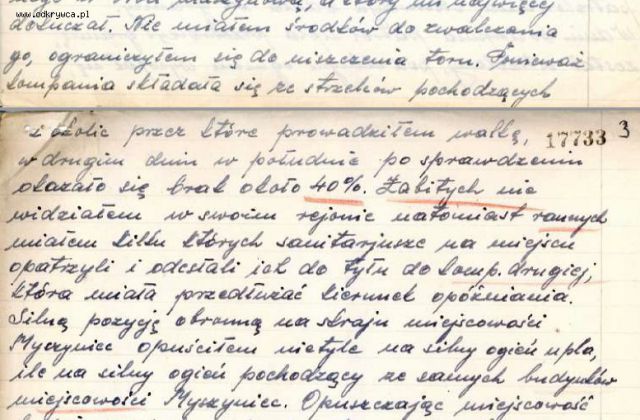 www.odkrywca.pl
dokuczał. Nie miałem środków do zwalczania
go, ograniczyłem się do niszczenia torn. Ponieważ
kompania składała się ze strzelców pochodzących
z okolic przez które prowadziłem walkę, 17733 3
w drugim dniu w południe po sprawdzeniu
okazało się brak około 40%. Zabitych nie
widziałem w swoim rejonie natomiast rannych
miałem kilku których sanitarjusze na miejscu
opatrzyli i odesłali ich do tyłu do komp. drugiej,
która miała przedłużać kierunek opóźniania.
Silną pozycję obronną na skraju miejscowości
Myszyniec opuściłem nietyle na silny ogień npla,
ile na silny ogień pochodzący ze samych budynków
miejscowości Myszyniec. Opuszczając miejscowość